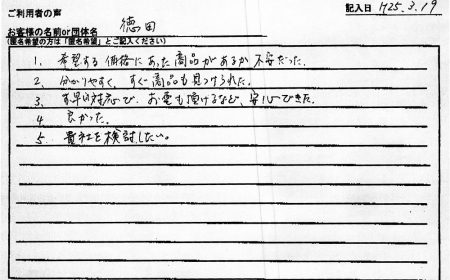 ご利用者の声
記入日 H25.3.19
お客様の名前or団体名 徳田
(匿名希望の方は「匿名希望」とご記入ください)
1. 希望する価格にあった商品があるか不安だった。
2. 分かりやすく、すぐ商品も見つけられた。
3. す早い対応で、お電も頂けるなど、安心できた。
4 良かった。
5. 貴社を検討したい。